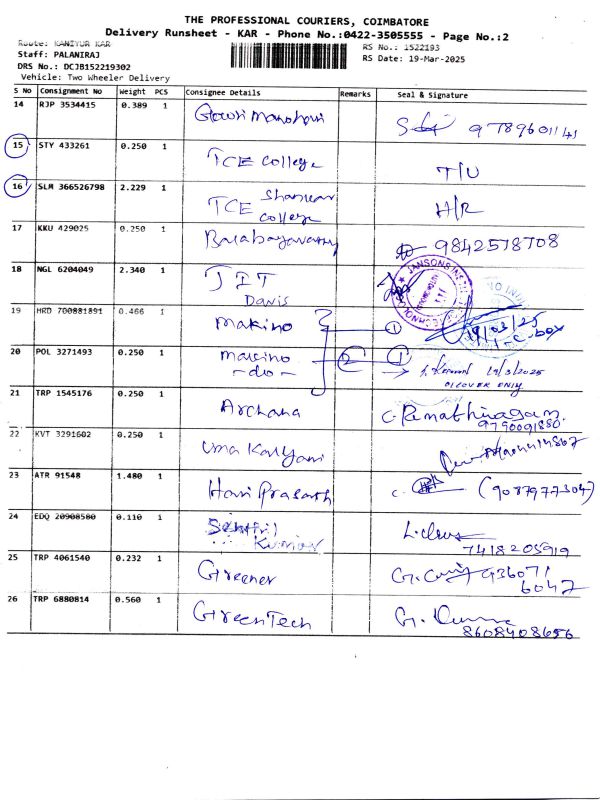 THE PROFESSIONAL COURIERS, COIMBATORE
Delivery Runsheet - KAR - Phone No.:0422-3505555 - Page No.:2
Route: KANIYUR KAR
RS No.: 1522193
Staff: PALANIRAJ
RS Date: 19-Mar-2025
DRS No.: DCJB152219302
Vehicle: Two Wheeler Delivery
S No Consignment No Weight PCS Consignee Details Remarks Seal & Signature
14 RJP 3534415 0.389 1 Gowri Manohari 9789601141
15 STY 433261 0.250 1 TCE College T/U
16 SLM 366526798 2.229 1 TCE Shankar College H/R
17 KKU 429025 0.250 1 9842578708
18 NGL 6204049 2.340 1 JIT Davis
19 HRD 700881891 0.466 1 Makino 1 19/03/25
20 POL 3271493 0.250 1 Makino -do- 2 1 19/3/2025
01 COVER ONLY
21 TRP 1545176 0.250 1 Archana 9790091880
22 KVT 3291602 0.250 1 Uma Kalyani
23 ATR 91548 1.480 1 Hari Prasath (9087977304)
24 EDQ 20908580 0.110 1 Senthil Kumar 7418205919
25 TRP 4061540 0.232 1 Greener 936071 6047
26 TRP 6880814 0.560 1 GreenTech 8608408656